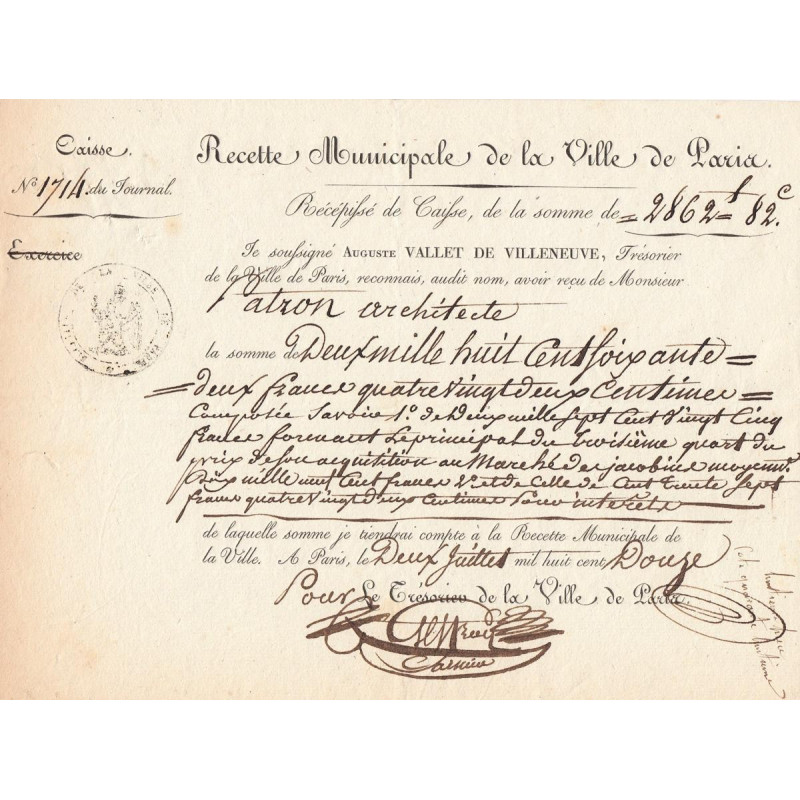 Caisse.
N.o 1714. du Journal.
Exercice
Recette Municipale de la Ville de Paris.
Récépissé de Caisse, de la somme de = 2862 f 82 c.
Je soussigné AUGUSTE VALLET DE VILLENEUVE, Trésorier
de la Ville de Paris, reconnais, audit nom, avoir reçu de Monsieur
Patron architecte
la somme de Deux mille huit Cent soixante =
= deux francs quatre vingt deux Centimes =
Composée Savoir 1.o de Deux mille sept Cent Vingt Cinq
francs formant le principal du troisième quart du
prix de son acquisition au Marché des jacobins moyenn.t
mille Cent francs 2.o et de Celle de Cent trente sept
francs quatre vingt deux Centimes pour intérêts
de laquelle somme je tiendrai compte à la Recette Municipale de
la Ville. A Paris, le Deux Juillet mil huit cent Douze
Pour Le Trésorier de la Ville de Paris.